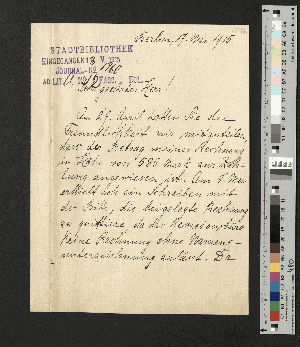 Berlin, 17. Mai 1915
STADTBIBLIOTHEK
EINGEGANGEN 18. V. 1915
JOURNAL-No
Sehr geehrter Herr!
Am 27. April hatten Sie die
Freundlichkeit mir mitzuteilen,
dass der Betrag meiner Rechnung
in Höhe von 585 Mark zur Zah-
lung angewiesen ist. Am 8. Mai
erhielt ich ein Schreiben mit
der Bitte, die beigelegte Rechnung
zu quittieren, da das Revisionsbüro
keine Rechnung ohne Namens-
unterzeichnung anlässt. Da